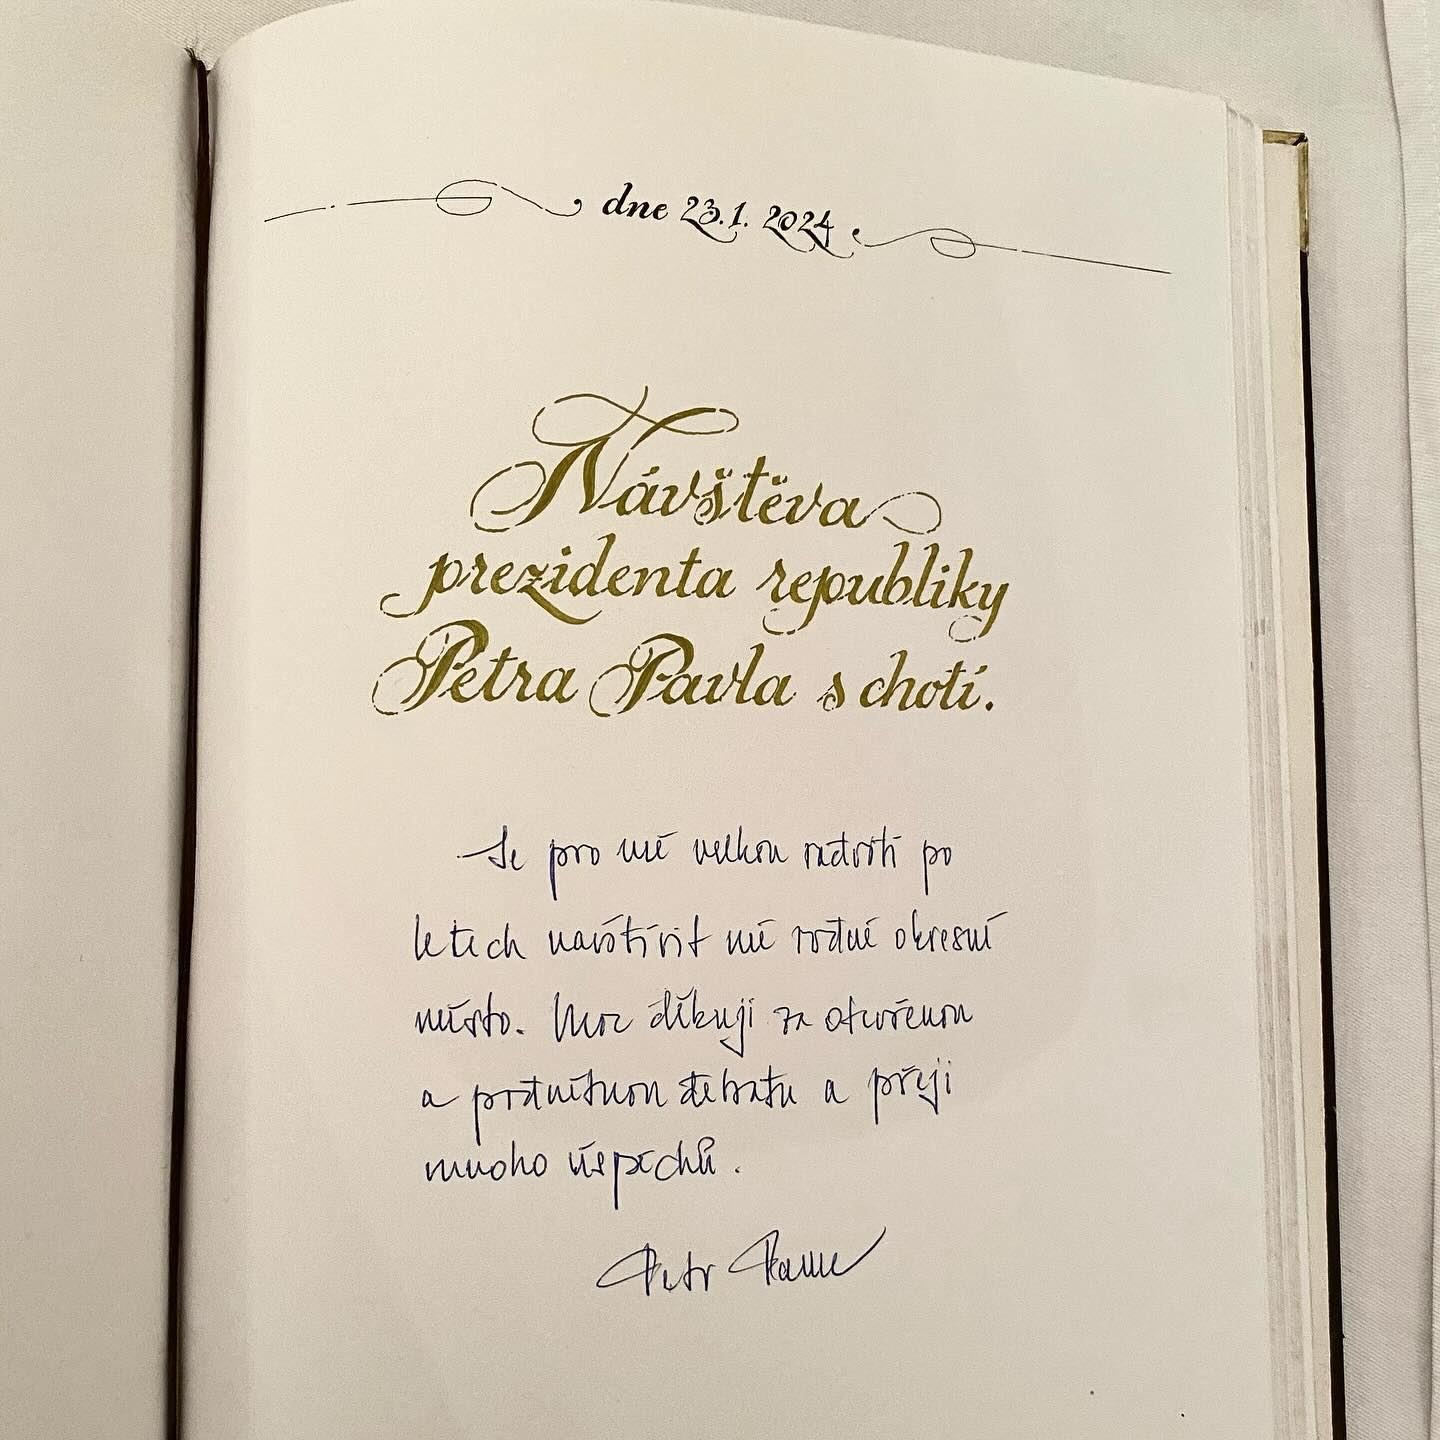 dne 23.1. 2024
Návštěva
prezidenta republiky
Petra Pavla s chotí.
Je pro mě velkou radostí po
letech navštívit mé rodné okresní
město. Moc děkuji za otevřenou
a podnětnou debatu a přeji
mnoho úspěchů.
Petr Pavel